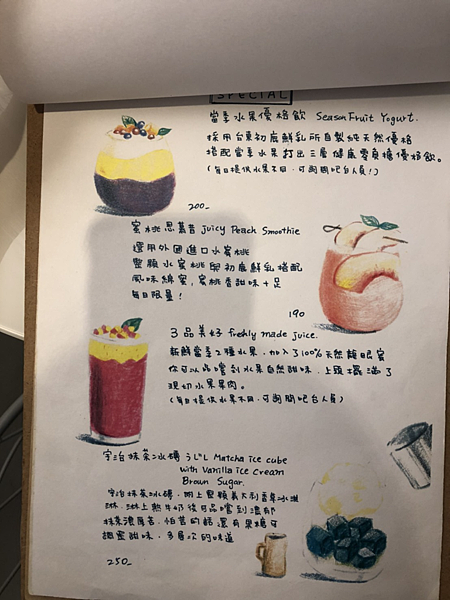 SPECIAL
當季水果優格飲 Season Fruit Yogurt.
採用台東初鹿鮮乳所自製純天然優格
搭配當季水果打出三層健康零負擔優格飲。
(每日提供水果不同,可詢問吧台人員!)
200_
蜜桃思慕昔 Juicy Peach Smoothie
選用外國進口水蜜桃
整顆水蜜桃與初鹿鮮乳搭配
風味綿蜜,蜜桃香甜味十足
每日限量!
190
3品美好 freshly made juice.
新鮮當季2種水果,加入了100%天然龍眼蜜
你可以品嚐到水果自然甜味,上頭擺滿了
現切水果果肉。
(每日提供水果不同,可詢問吧台人員)
宇治抹茶冰磚 うじし Matcha ice cube
with Vanilla ice Cream
Brown Sugar.
宇治抹茶冰磚,附上雙顆義大利香草冰淇
淋,淋上熱牛奶後可品嚐到濃郁
抹茶濃厚苦,怕苦的話還有黑糖可
調蜜甜味,多層次的味道
250_